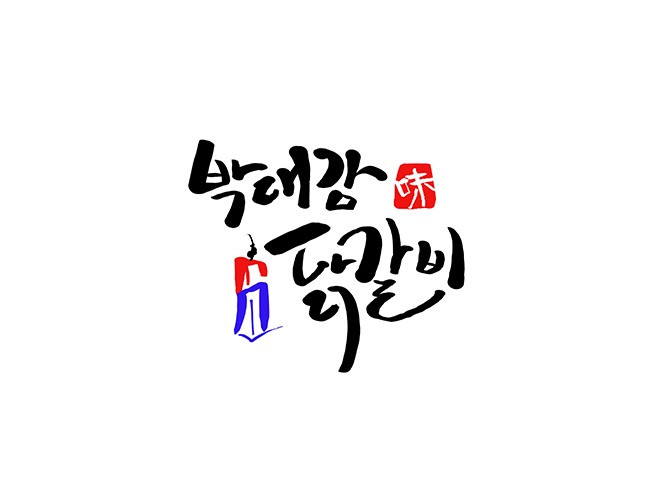 박대감 味
닭갈비